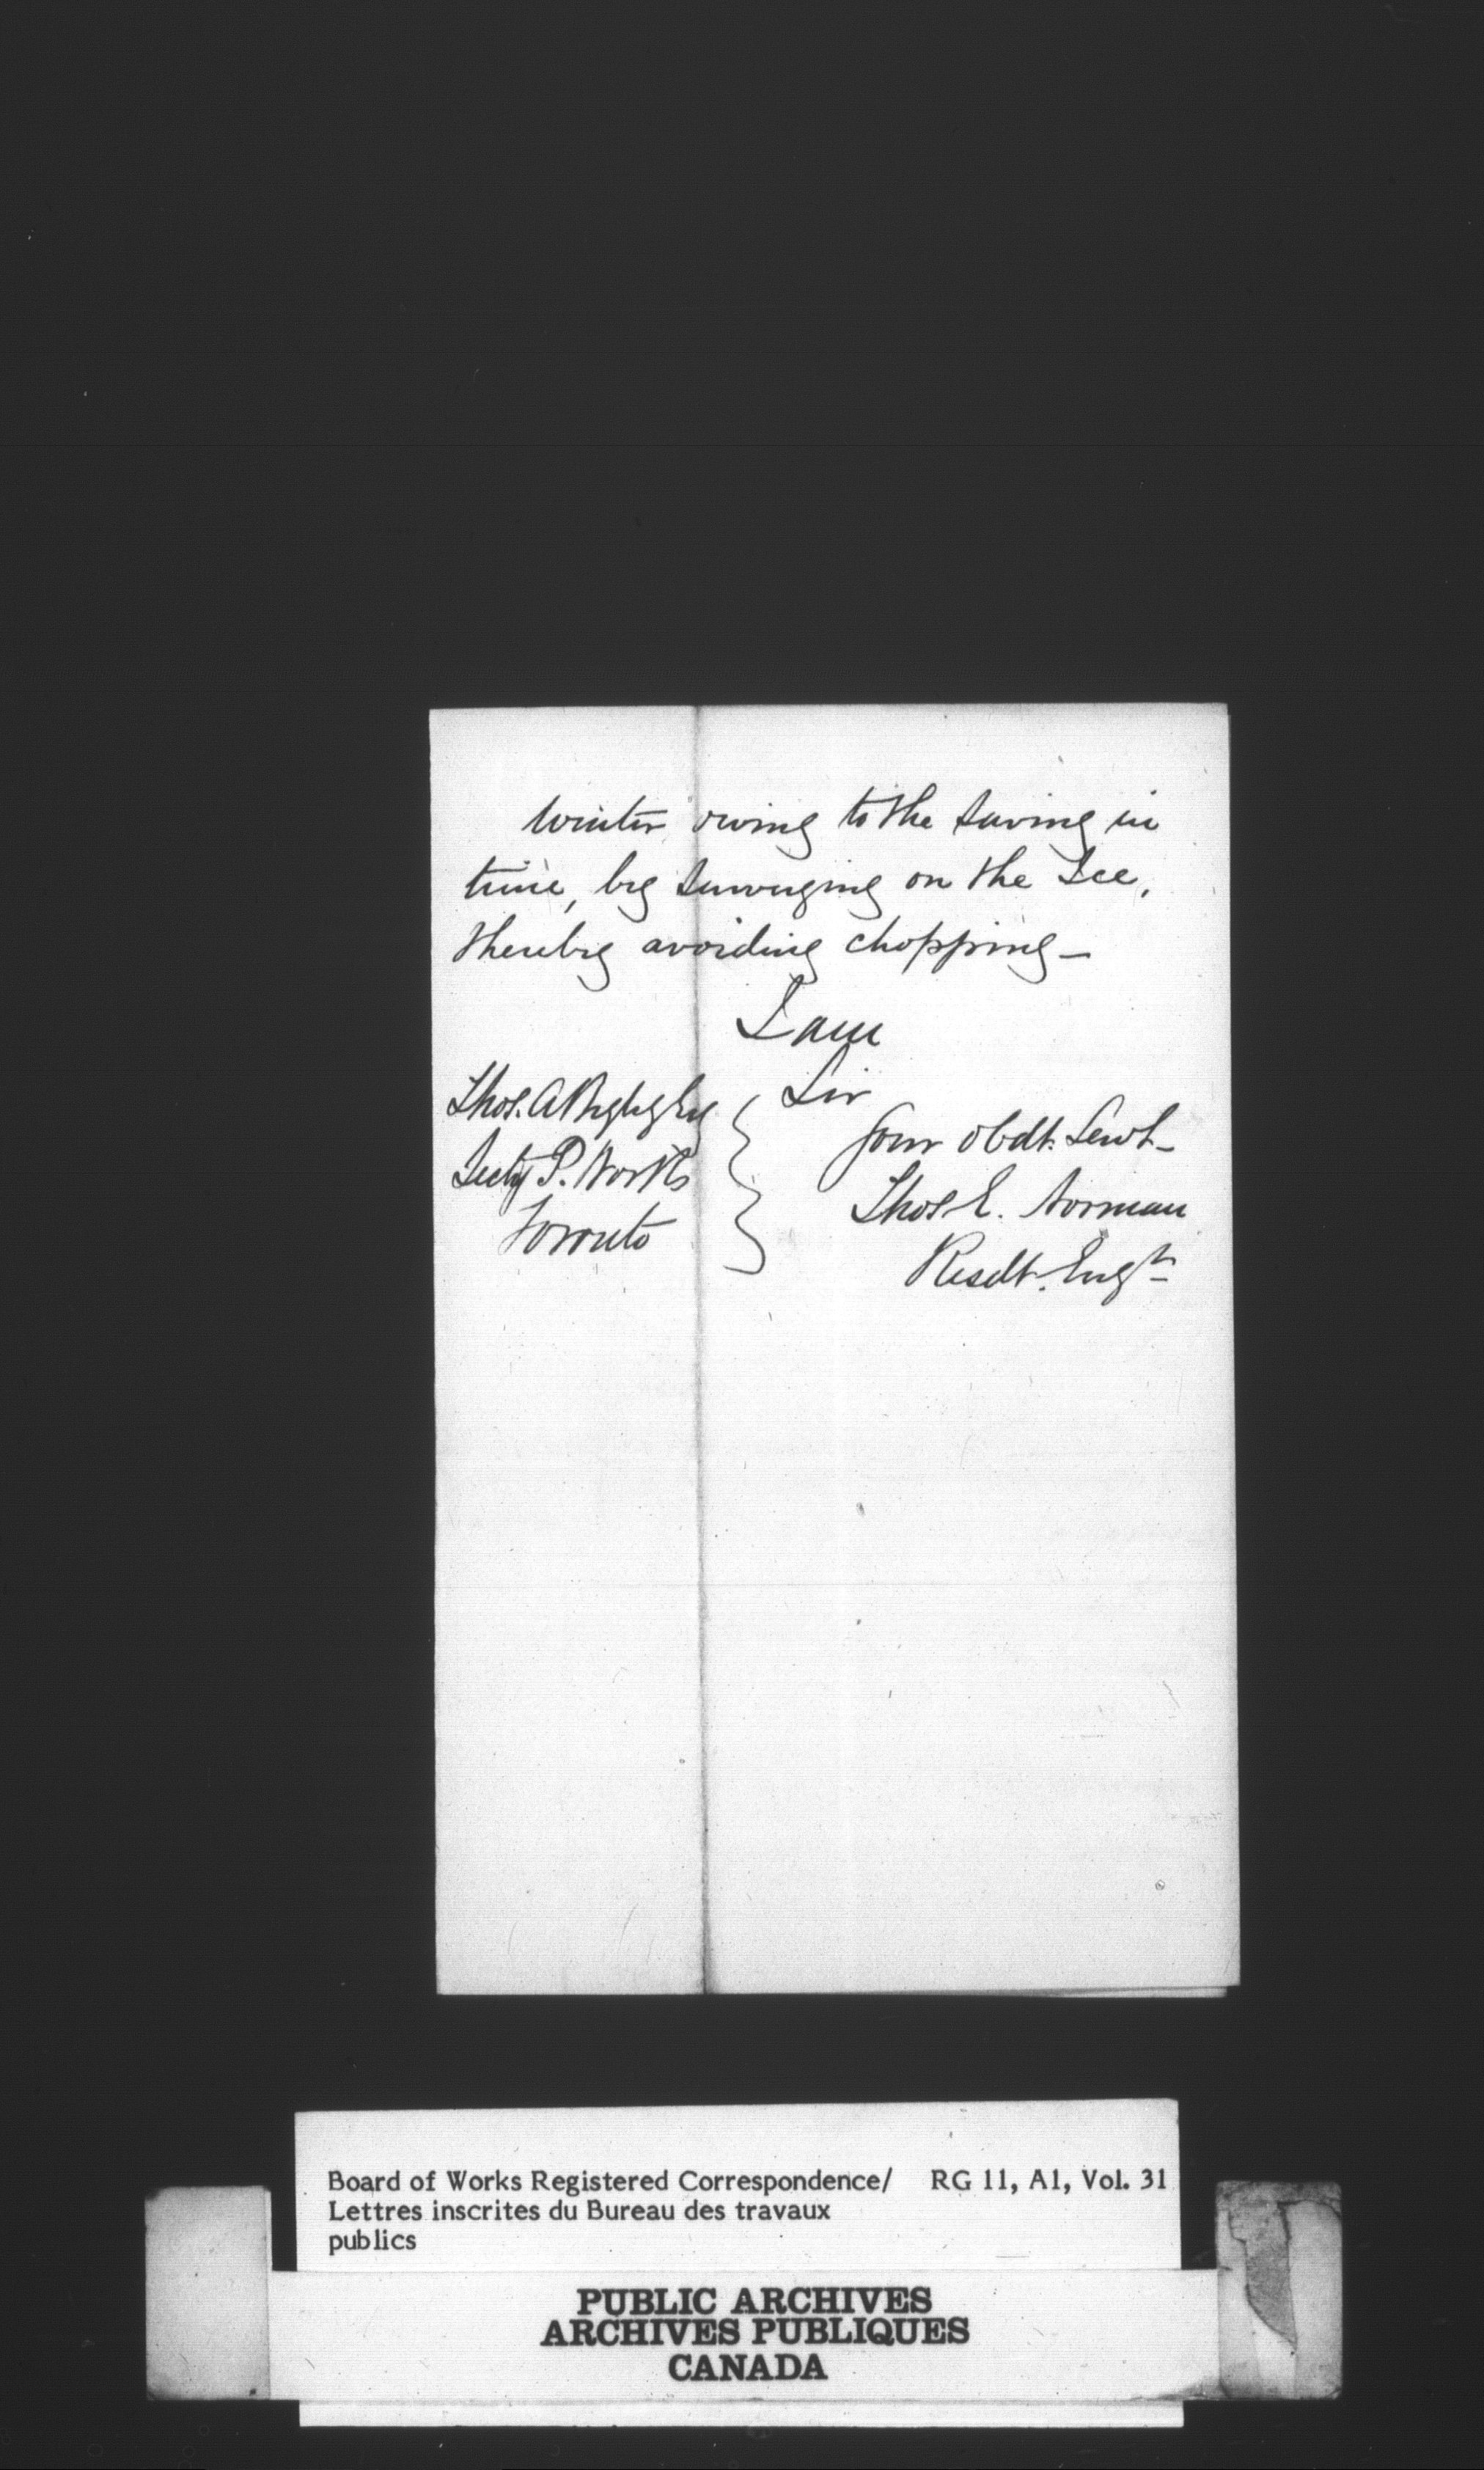 Winter owing to the saving in
time, by surveying on the Ice,
thereby avoiding chopping—
I am
Sir
Your obdt. Servt—
Thos E. Norman
Resdt. Engr
Thos. A Begly Esq
Secty P. Works
Toronto
Board of Works Registered Correspondence/ RG 11, A1, Vol. 31
Lettres inscrites du Bureau des travaux
publics
PUBLIC ARCHIVES
ARCHIVES PUBLIQUES
CANADA